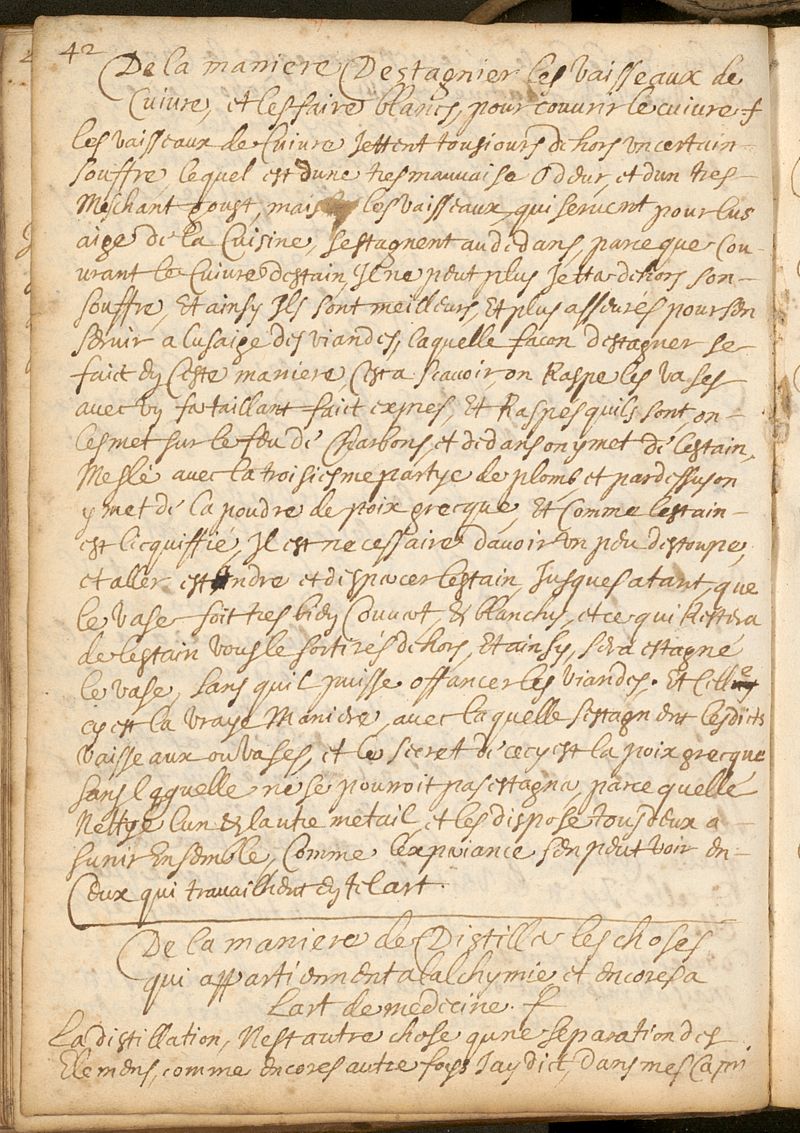 42
De la maniere Destagnier les Vaisseaux de
Cuivre, et les faire blancs, pour couurir le cuiure f
les vaisseaux de Cuivre Jettent tousiours dehors un certain
souffre, lequel est dune tres mauuaise Odeur, et dun tres
Meschant goust, mais les vaisseaux qui seruent pour lus
aige de la Cuisine, sestagnent au dedans parce que Cou-
urant le Cuivre destain, Il ne peut plus Jetter dehors son
souffre, Et ainsy Ils sont meilleurs, et plus asseurés pour sen
seruir a lusaige des viandes, laquelle facon destagner se
faict Ceste maniere, Cest a scauoir, on Raspe les vases
avec un fer taillant faict expres, Et Raspés quils sont on
les met sur le feu de Charbons, et dedans on y met de lestain
Meslé avec la troisiesme partye de plomb et par dessus on
y met de la poudre de poix grecque, Et Comme lestain
est licquiffié, Il est necessaire davoir un peu destoupe,
et aller estendre et despacer lestain Jusques a tant, que
le vase soit tres bien Couuert, & blanchy, et ce qui Restera
de lestain vous le sortirés dehors, Et ainsy, sera estagné
le vase, sans quil puisse offancer les viandes. Et Celle
cy est la vraye Maniere, avec laquelle sestagnent lesdicts
vaisseaux ou vases, et le secret de cecy est la poix grecque
sans laquelle ne se pourroit pas estagner, parce quelle
Nettye lun & lautre metail, et les dispose tous deux a
sunir Ensemble, Comme lexperiance sen peut voir en
Ceux qui travailhent en tel art.
De la maniere de Distiller les choses
qui appartiennent a lalchymie et encores a
Lart de medecine. f
La distillation, Nest autre chose qune separation des
Elemens, comme encores autre foys Jay dict, dans mes Capri